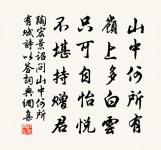 山中何所有
嶺上多白雲
只可自怡悅
不堪持贈君
陶宏景詔問山中何所
有賦詩以答詞典網集